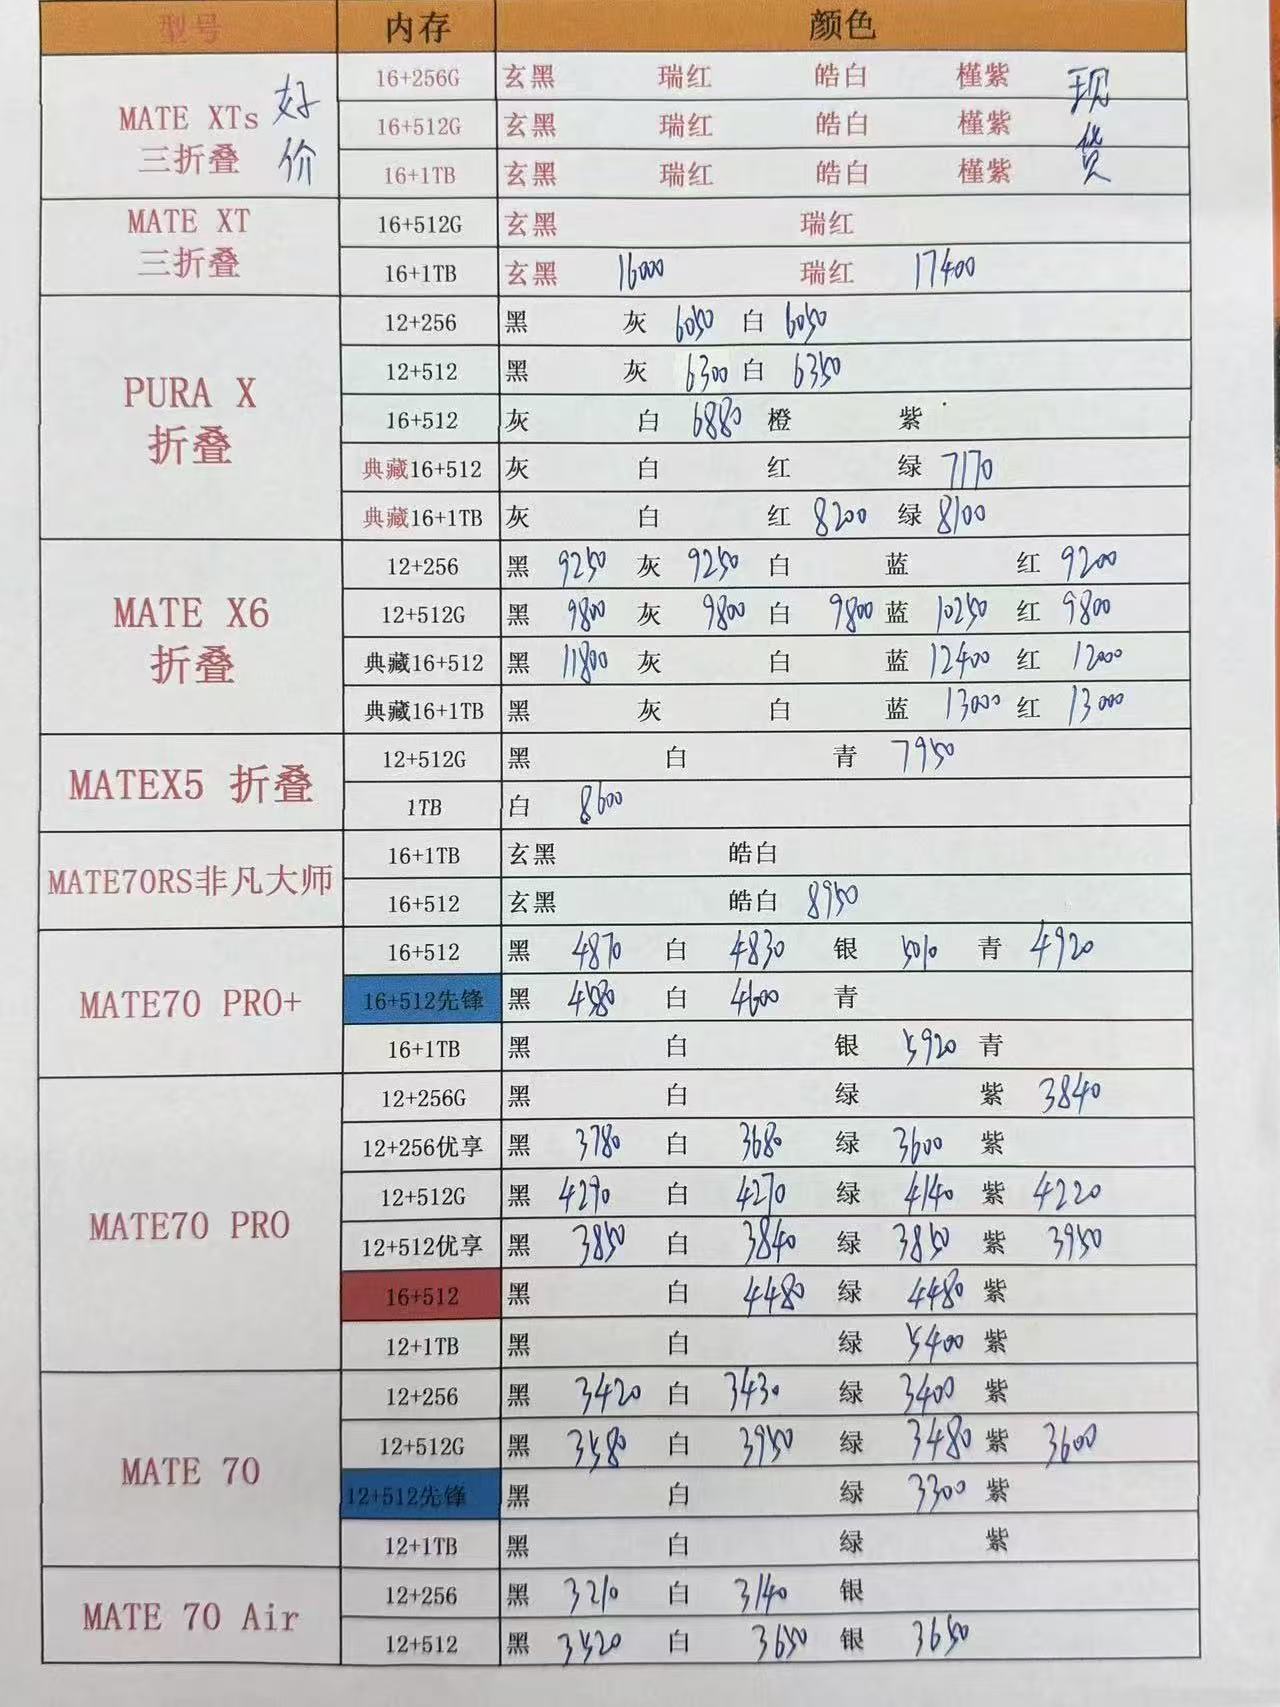 型号 内存 颜色
MATE XTs 三折叠 好价 现货
16+256G 玄黑 瑞红 皓白 槿紫
16+512G 玄黑 瑞红 皓白 槿紫
16+1TB 玄黑 瑞红 皓白 槿紫
MATE XT 三折叠
16+512G 玄黑 瑞红
16+1TB 玄黑 16000 瑞红 17400
PURA X 折叠
12+256 黑 灰 6050 白 6050
12+512 黑 灰 6300 白 6350
16+512 灰 白 6880 橙 紫
典藏16+512 灰 白 红 绿 7170
典藏16+1TB 灰 白 红 8200 绿 8100
MATE X6 折叠
12+256 黑 9250 灰 9250 白 蓝 红 9200
12+512G 黑 9800 灰 9800 白 9800 蓝 10250 红 9800
典藏16+512 黑 11800 灰 白 蓝 12400 红 12000
典藏16+1TB 黑 灰 白 蓝 13000 红 13000
MATEX5 折叠
12+512G 黑 白 青 7950
1TB 白 8600
MATE70RS非凡大师
16+1TB 玄黑 皓白
16+512 玄黑 皓白 8950
MATE70 PRO+
16+512 黑 4870 白 4830 银 5010 青 4920
16+512先锋 黑 4580 白 4600 青
16+1TB 黑 白 银 5920 青
MATE70 PRO
12+256G 黑 白 绿 紫 3840
12+256优享 黑 3780 白 3680 绿 3600 紫
12+512G 黑 4290 白 4270 绿 4140 紫 4220
12+512优享 黑 3850 白 3840 绿 3850 紫 3950
16+512 黑 白 4480 绿 4480 紫
12+1TB 黑 白 绿 5400 紫
MATE 70
12+256 黑 3420 白 3430 绿 3400 紫
12+512G 黑 3580 白 3950 绿 3480 紫 3600
12+512先锋 黑 白 绿 3300 紫
12+1TB 黑 白 绿 紫
MATE 70 Air
12+256 黑 3210 白 3140 银
12+512 黑 3520 白 3650 银 3650